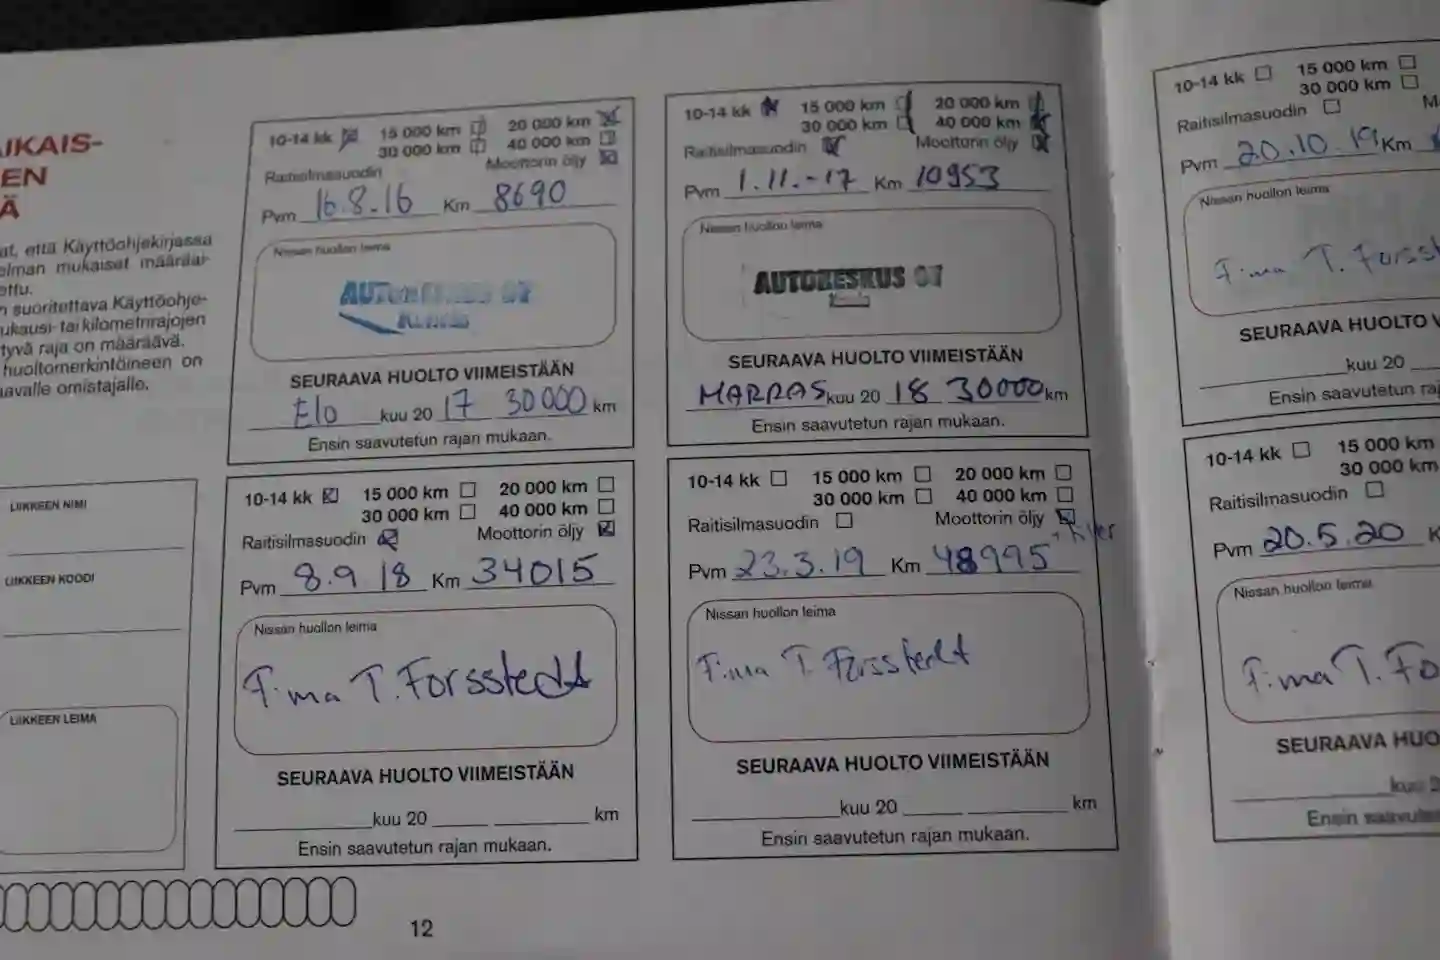 IKAIS-
EN
Ä
at, että Käyttöohjekirjassa
elman mukaiset määräai-
ettu.
n suoritettava Käyttöohje-
ukausi- tai kilometrirajojen
tyvä raja on määräävä.
huoltomerkintöineen on
aavalle omistajalle.
LIIKKEEN NIMI
LIIKKEEN KOODI
LIIKKEEN LEIMA
10-14 kk 15 000 km 20 000 km
30 000 km 40 000 km
Raitisilmasuodin Moottorin öljy
Pvm 16.8.16 Km 8690
Nissan huollon leima
AUTOKESKUS OY
SEURAAVA HUOLTO VIIMEISTÄÄN
Elo kuu 20 17 30000 km
Ensin saavutetun rajan mukaan.
10-14 kk 15 000 km 20 000 km
30 000 km 40 000 km
Raitisilmasuodin Moottorin öljy
Pvm 1.11.-17 Km 10953
Nissan huollon leima
AUTOKESKUS OY
SEURAAVA HUOLTO VIIMEISTÄÄN
MARRAS kuu 20 18 30000 km
Ensin saavutetun rajan mukaan.
10-14 kk 15 000 km 20 000 km
30 000 km 40 000 km
Raitisilmasuodin Moottorin öljy
Pvm 8.9.18 Km 34015
Nissan huollon leima
F:ma T. Forsstedt
SEURAAVA HUOLTO VIIMEISTÄÄN
kuu 20 km
Ensin saavutetun rajan mukaan.
10-14 kk 15 000 km 20 000 km
30 000 km 40 000 km
Raitisilmasuodin Moottorin öljy
Pvm 23.3.19 Km 48995
Nissan huollon leima
F:ma T. Forsstedt
SEURAAVA HUOLTO VIIMEISTÄÄN
kuu 20 km
Ensin saavutetun rajan mukaan.
10-14 kk 15 000 km
30 000 km
Raitisilmasuodin M
Pvm 20.10.19 Km
Nissan huollon leima
F:ma T. Forsst
SEURAAVA HUOLTO V
kuu 20
Ensin saavutetun raj
10-14 kk 15 000 km
30 000 km
Raitisilmasuodin
Pvm 20.5.20 K
Nissan huollon leima
F:ma T. Fo
SEURAAVA HUO
kuu 2
Ensin saavute
12